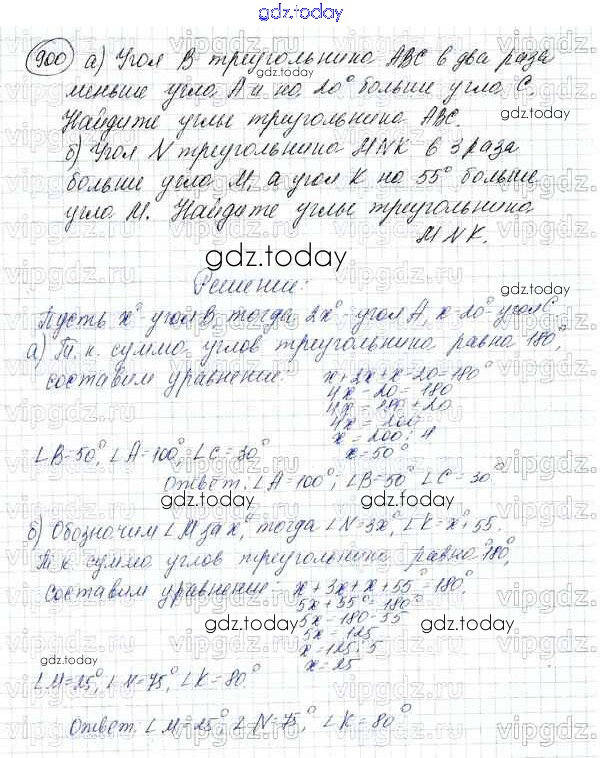 gdz.today
900 а) Угол В треугольника АВС в два раза
меньше угла А и на 20° больше угла С.
Найдите углы треугольника АВС.
б) Угол N треугольника MNK в 3 раза
больше угла М, а угол К на 55° больше
угла М. Найдите углы треугольника
MNK.
gdz.today
Решение:
Пусть х° - угол В, тогда 2х° - угол А, х-20° угол С
а) Т.к. сумма углов треугольника равна 180°,
составим уравнение:
х+2х+х-20=180°
4х-20=180
4х=180+20
4х=200
х=200:4
х=50°
∠B=50°, ∠A=100°, ∠C=30°
Ответ: ∠A=100°; ∠B=50° ∠C=30°
gdz.today
б) Обозначим ∠M за х°, тогда ∠N=3х°, ∠K=х°+55.
Т.к. сумма углов треугольника равна 180°,
составим уравнение:
х+3х+х+55°=180°,
5х+55°=180°
5х=180-55
5х=125
х=125:5
х=25
gdz.today
∠M=25°, ∠N=75°, ∠K=80°
Ответ. ∠M=25°, ∠N=75°, ∠K=80°
gdz.today